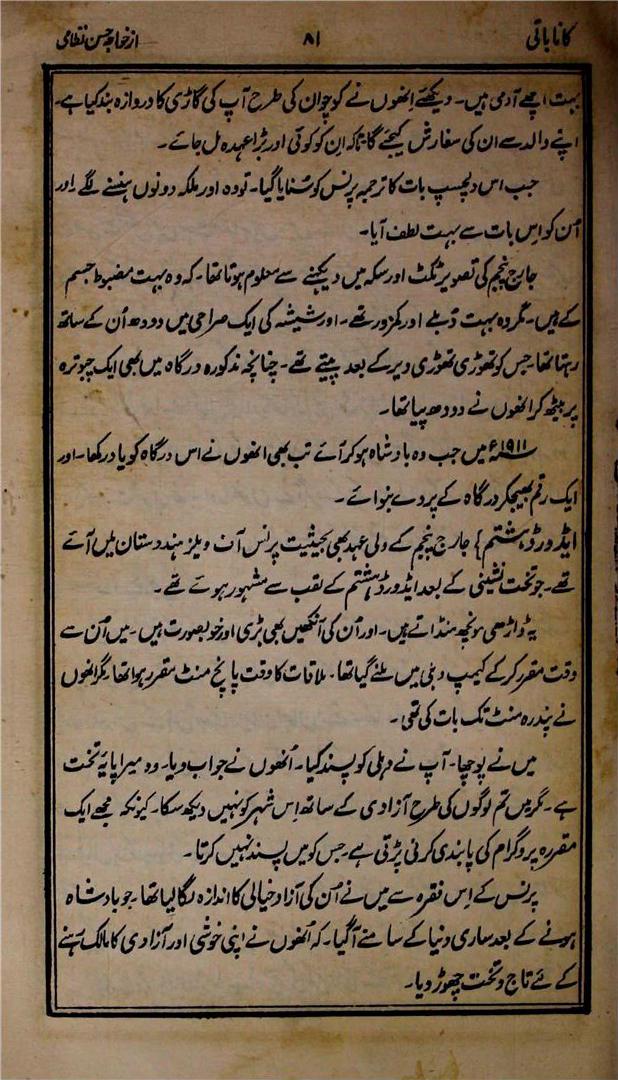 کانا باتی ۸۱ از خواجہ حسن نظامی
بہت اچھے آدمی ہیں۔ دیکھئے انھوں نے کوچوان کی طرح آپ کی گاڑی کا دروازہ بند کیا ہے۔
اپنے والد سے ان کی سفارش کیجئے گا۔ تاکہ ان کو کوئی اور بڑا عہدہ مل جائے۔
جب اس دلچسپ بات کا ترجمہ پرنس کو سُنایا گیا۔ تو وہ اور ملکہ دونوں ہنسنے لگے اور
اُن کو اِس بات سے بہت لطف آیا۔
جارج پنجم کی تصویر ٹکٹ اور سکہ میں دیکھنے سے معلوم ہوتا تھا۔ کہ وہ بہت مضبوط جسم
کے ہیں۔ مگر وہ بہت دُبلے اور کمزور تھے۔ اور شیشہ کی ایک صراحی میں دودھ اُن کے ساتھ
رہتا تھا۔ جس کو تھوڑی تھوڑی دیر کے بعد پیتے تھے۔ چنانچہ مذکورہ درگاہ میں بھی ایک چبوترہ
پر بیٹھ کر انھوں نے دودھ پیا تھا۔
۱۹۱۱ء میں جب وہ بادشاہ ہو کر آئے تب بھی انھوں نے اس درگاہ کو یاد رکھا۔ اور
ایک رقم بھیجکر درگاہ کے پردے بنوائے۔
ایڈورڈ ہشتم} جارج پنجم کے ولی عہد بھی بحیثیت پرنس آف ویلز ہندوستان میں آئے
تھے۔ جو تخت نشینی کے بعد ایڈورڈ ہشتم کے لقب سے مشہور ہوئے تھے۔
یہ ڈاڑھی مونچھ منڈاتے ہیں۔ اور اُن کی آنکھیں بھی بڑی اور خوبصورت ہیں۔ میں اُن سے
وقت مقرر کر کے کیمپ دہلی میں ملنے گیا تھا۔ ملاقات کا وقت پانچ منٹ مقرر ہوا تھا۔ مگر انھوں
نے پندرہ منٹ تک بات کی تھی۔
میں نے پوچھا۔ آپ نے دہلی کو پسند کیا۔ اُنھوں نے جواب دیا۔ وہ میرا پایۂ تخت
ہے۔ مگر میں تم لوگوں کی طرح آزادی کے ساتھ اِس شہر کو نہیں دیکھ سکا۔ کیونکہ مجھے ایک
مقررہ پروگرام کی پابندی کرنی پڑتی ہے۔ جس کو میں پسند نہیں کرتا۔
پرنس کے اِس فقرہ سے میں نے اُن کی آزاد خیالی کا اندازہ لگا لیا تھا۔ جو بادشاہ
ہونے کے بعد ساری دنیا کے سامنے آ گیا۔ کہ اُنھوں نے اپنی خوشی اور آزادی کا مالک رہنے
کے لئے تاج و تخت چھوڑ دیا۔